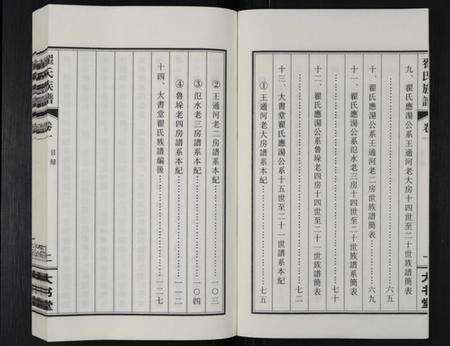 翟氏族譜
卷一
九、翟氏應湯公系王通河老大房十四世至二十一世族譜簡表
……六五
十、翟氏應湯公系王通河老二房世族譜簡表……六九
十一、翟氏應湯公系氾水老三房十四世至二十世族譜系簡表
……七十
十二、翟氏應湯公系魯垛老四房十四世至二十一世族譜簡表
……七二
十三、大書堂翟氏應湯公系十五世至二十一世譜系本紀
①王通河老大房譜系本紀……七五
一
大书堂
②王通河老二房譜系本紀……一〇三
③氾水老三房譜系本紀……一〇四
④魯垛老四房譜系本紀……一一二
十四、大書堂翟氏族譜編後……一二七
翟氏族譜
卷一
目錄
二
大书堂